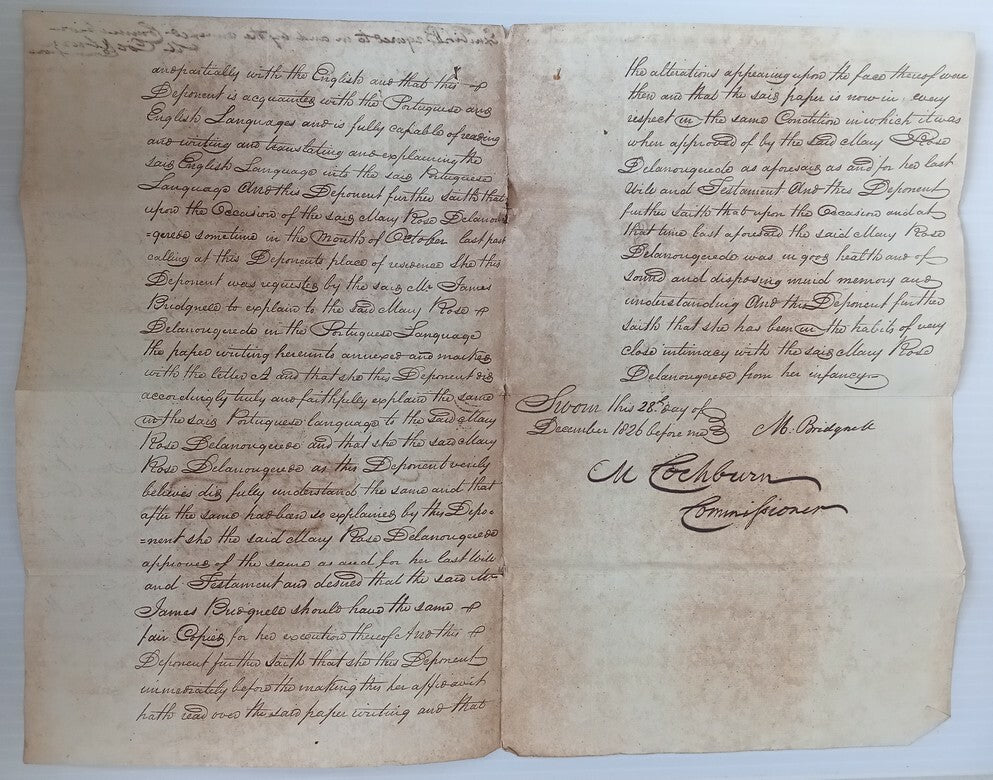 and partially with the English and that this
Deponent is acquainted with the Portuguese and
English Languages and is fully capable of reading
and writing and translating and explaining the
said English Language into the said Portuguese
Language And this Deponent further saith that
upon the Occasion of the said Mary Rose Delanou
=gerede sometime in the Month of October last past
calling at this Deponents place of residence She this
Deponent was requested by the said Mr James
Bridgnell to explain to the said Mary Rose
Delanougerede in the Portuguese Language
the paper writing hereunto annexed and marked
with the letter A and that she this Deponent did
accordingly truly and faithfully explain the same
in the said Portuguese language to the said Mary
Rose Delanougerede and that she the said Mary
Rose Delanougerede as this Deponent verily
believes did fully understand the same and that
after the same had been so explained by this Depo=
=nent she the said Mary Rose Delanougerede
approved of the same as and for her last Will
and Testament and desired that the said Mr
James Bridgnell should have the same
fair Copied for her execution thereof And this
Deponent further saith that she this Deponent
immediately before the making this her affidavit
hath read over the said paper writing and that
the alterations appearing upon the face thereof were
then and that the said paper is now in every
respect in the same Condition in which it was
when approved of by the said Mary Rose
Delanougerede as aforesaid as and for her last
Will and Testament And this Deponent
further saith that upon the Occasion and at
that time last aforesaid the said Mary Rose
Delanougerede was in good health and of
sound and disposing mind memory and
understanding And this Deponent further
saith that she has been in the habits of very
close intimacy with the said Mary Rose
Delanougerede from her infancy
Sworn this 28th day of
December 1826 before me
M. Bridgnell
M Cochburn
Commissioner